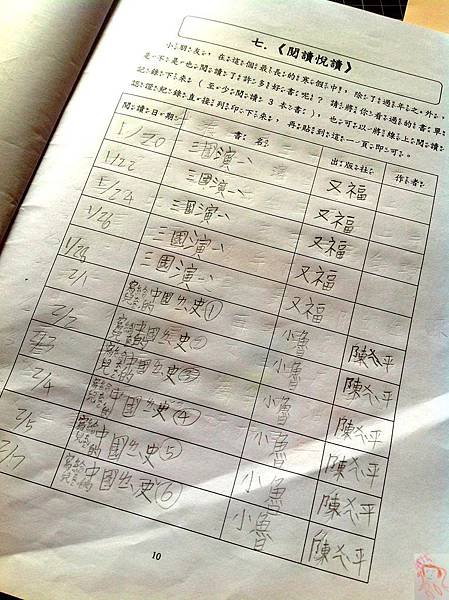 七、《閱讀悅讀》
小朋友，在這個最長的寒假中，除了過年之外，
是不是也閱讀了許多好書呢？請將你看過的書單
記錄下來（至少閱讀 3 本書），也可以將線上閱讀
認證紀錄直接列印下來，再黏貼到這一頁即可。
閱讀日期 書名 出版社 作者
1/20 三國演 又福
1/22 三國演 又福
1/24 三國演 又福
1/26 三國演 又福
1/28 三國演 又福
2/1 寫給兒童的中國史① 小魯 陳平
2/2 寫給兒童的中國史② 小魯 陳平
寫給兒童的中國史③ 小魯 陳平
2/4 寫給兒童的中國史④ 小魯 陳平
2/5 寫給兒童的中國史⑤ 小魯 陳平
2/7 寫給兒童的中國史⑥ 小魯 陳平
10